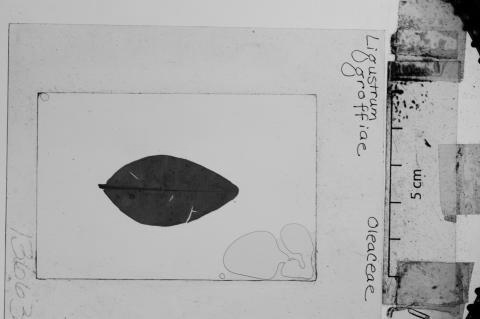 Ligustrum
groffiae
Oleaceae
5 cm